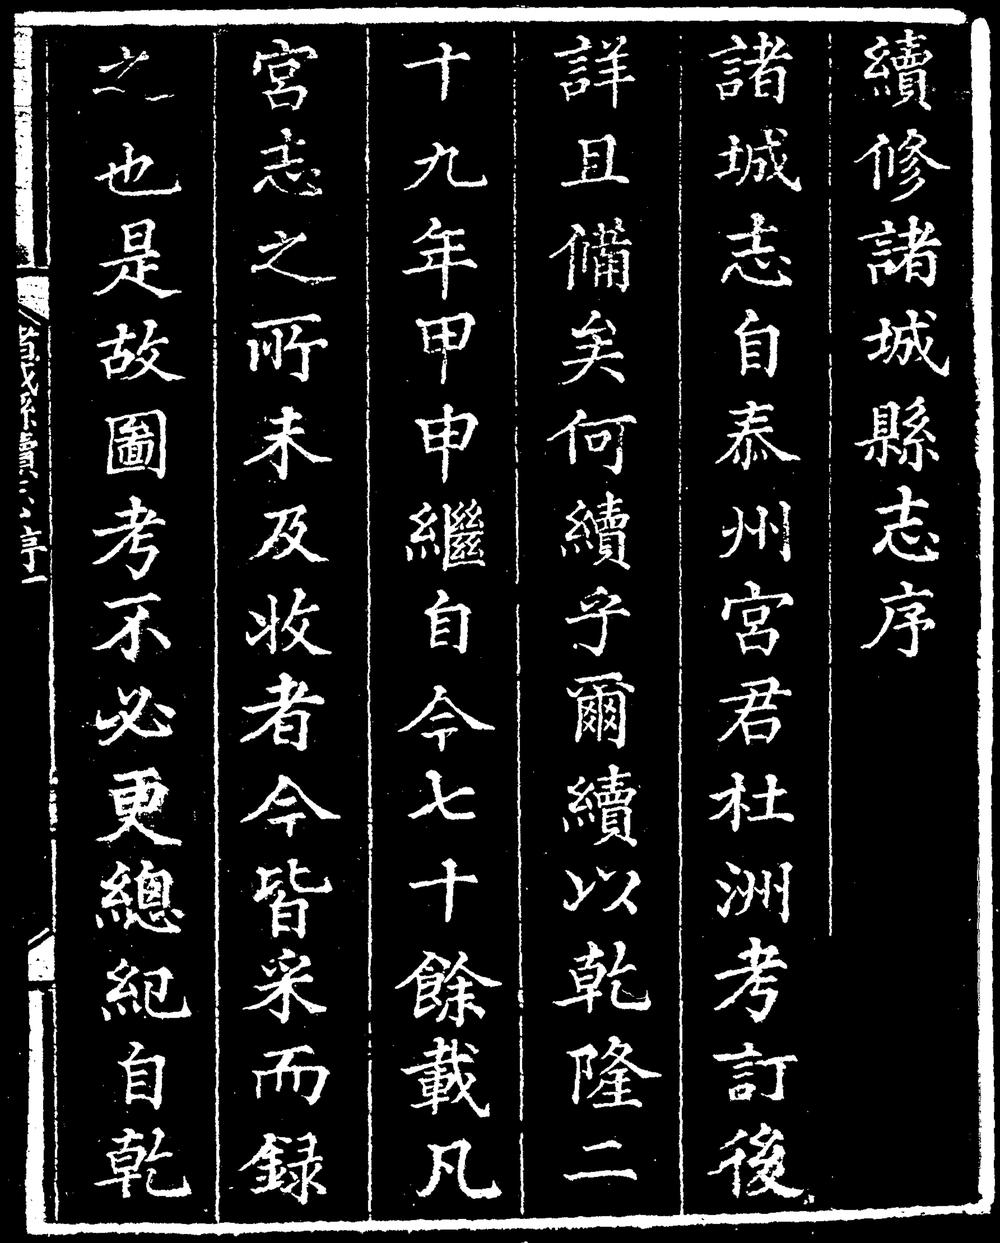 續修諸城縣志序
諸城志自泰州宮君杜洲考訂後
詳且備矣何續乎爾續以乾隆二
十九年甲申繼自今七十餘載凡
宮志之所未及收者今皆采而録
之也是故圖考不必更總紀自乾